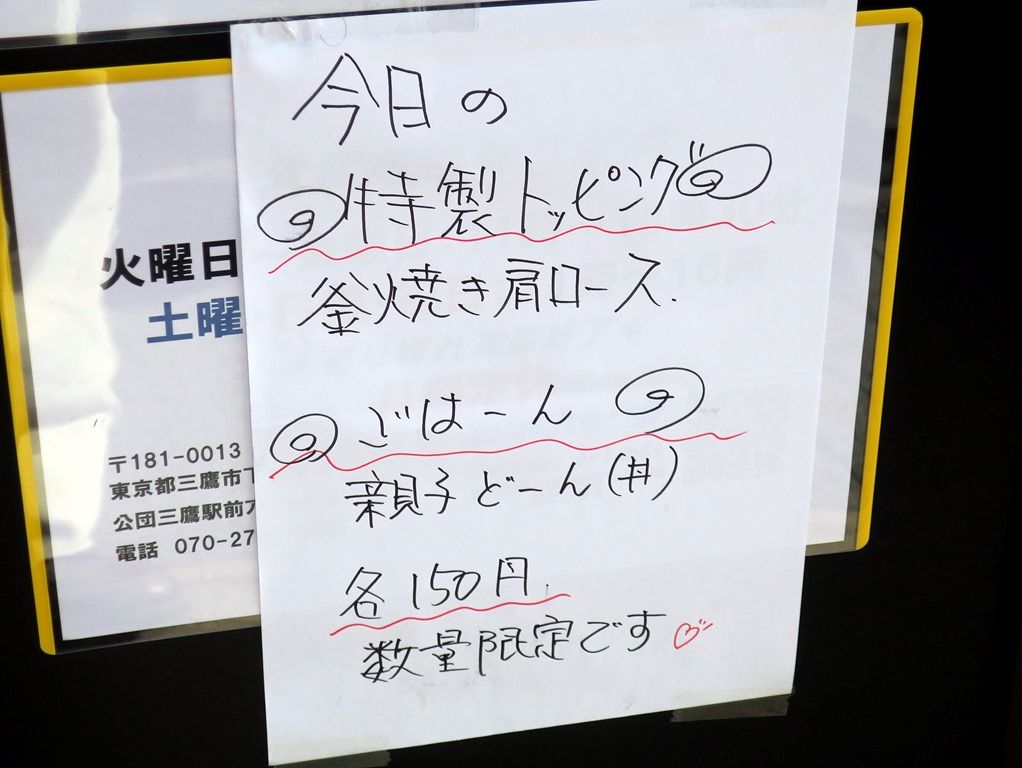 今日の
特製トッピング
釜焼き肩ロース.
ごはーん
親子どーん(丼)
各150円.
数量限定です
火曜日
土曜
〒181-0013
東京都三鷹市下
公団三鷹駅前ア
電話 070-27
16時